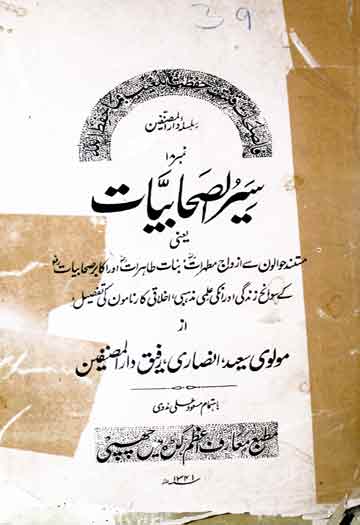 39
فالصٰلحٰت قٰنتٰت حٰفظٰت للغیب بما حفظ الله
سلسلۂ دار المصنفین
نمبر ۱۸
سیر الصحابیات
یعنی
مستند حوالون سے ازواج مطہراتؓ، بنات طاہراتؓ اور اکابر صحابیاتؓ
کے سوانح زندگی اور انکی علمی، مذہبی، اخلاقی کارنامون کی تفصیل،
از
مولوی سعید انصاری، رفیق دار المصنفین
باہتمام مسعود علی ندوی
مطبع معارف اعظم گڑھ مین چھپی
۱۳۴۱ھ